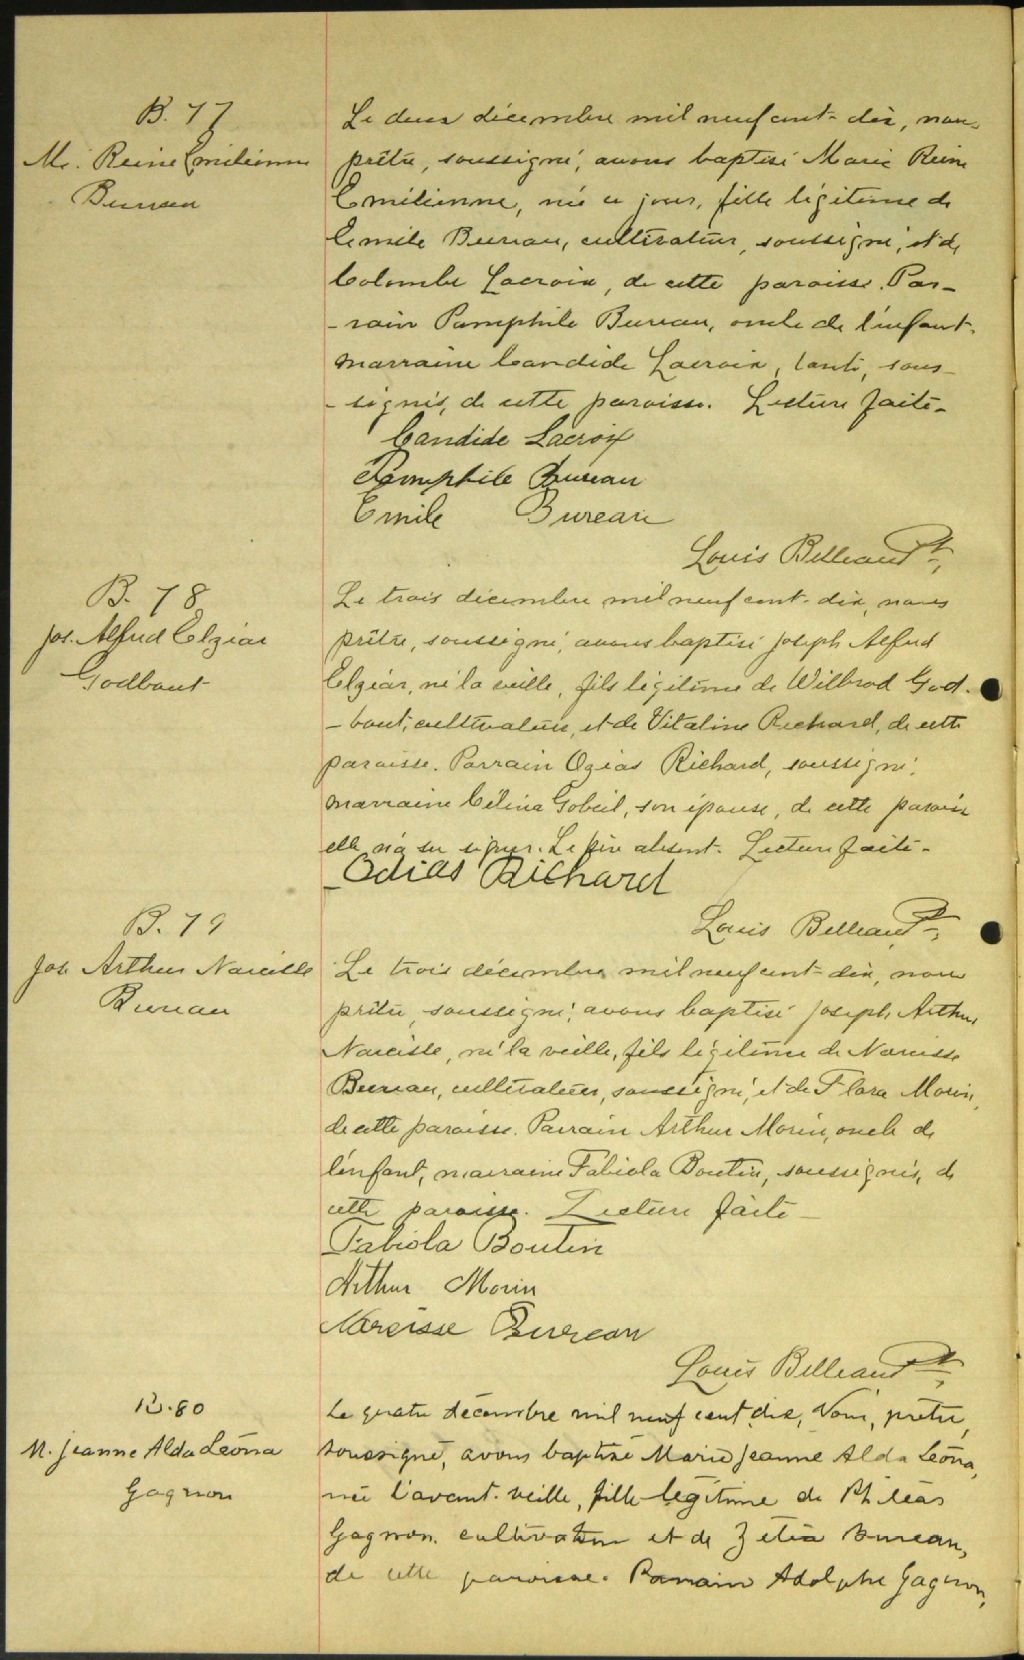 B. 77
M. Reine Emilienne
Bureau
Le deux décembre mil neuf cent-dix, nous
prêtre, soussigné, avons baptisé Marie Reine
Emilienne, née ce jour, fille légitime de
Emile Bureau, cultivateur, soussigné, et de
Colombe Lacroix, de cette paroisse. Par-
-rain Pamphile Bureau, oncle de l'enfant,
marraine Candide Lacroix, tante, sous-
-signés, de cette paroisse. Lecture faite-
Candide Lacroix
Pamphile Bureau
Emile Bureau
Louis Belleau Pt,
B. 78
Jos. Alfred Elzéar
Godbout
Le trois décembre mil neuf cent-dix, nous
prêtre, soussigné, avons baptisé Joseph Alfred
Elzéar, né la veille, fils légitime de Wilbrod God-
-bout, cultivateur, et de Vitaline Richard, de cette
paroisse. Parrain Ozias Richard, soussigné,
marraine Célina Gobeil, son épouse, de cette paroisse
elle n'a su signer. Le père absent. Lecture faite-
Odias Richard
Louis Belleau Pt,
B. 79
Jos Arthur Narcisse
Bureau
Le trois décembre mil neuf cent-dix, nous
prêtre, soussigné, avons baptisé Joseph Arthur
Narcisse, né la veille, fils légitime de Narcisse
Bureau, cultivateur, soussigné, et de Flora Morin,
de cette paroisse. Parrain Arthur Morin, oncle de
l'enfant, marraine Fabiola Boutin, soussignés, de
cette paroisse. Lecture faite-
Fabiola Boutin
Arthur Morin
Narcisse Bureau
Louis Belleau Pt,
B. 80
M. Jeanne Alda Leóna
Gagnon
Le quatre décembre mil neuf cent dix, Nous, prêtre,
soussigné, avons baptisé Marie Jeanne Alda Leóna,
née l'avant-veille, fille légitime de Philéas
Gagnon, cultivateur et de Zélia Bureau,
de cette paroisse. Parrain Adolphe Gagnon,